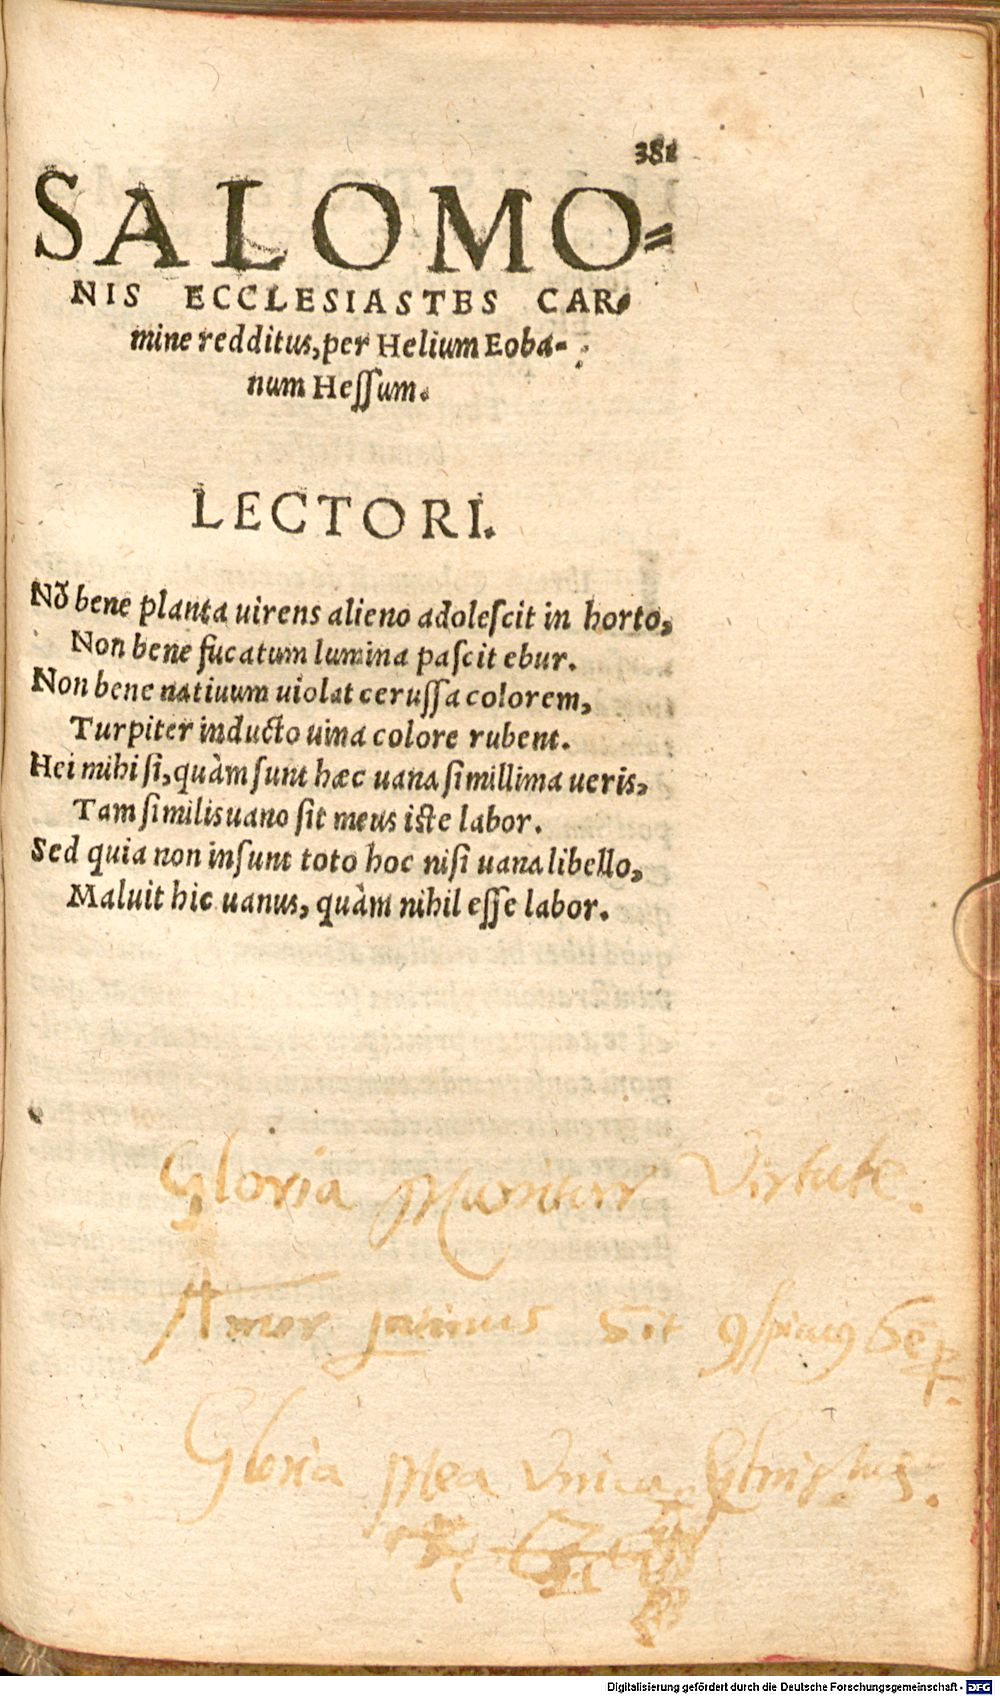 381
SALOMO=
NIS ECCLESIASTES CAR-
mine redditus, per Helium Eoba-
num Hessum.
LECTORI.
Nō bene planta uirens alieno adolescit in horto,
Non bene fucatum lumina pascit ebur.
Non bene natiuum uiolat cerussa colorem,
Turpiter inducto uina colore rubent.
Hei mihi si, quàm sunt hæc uana simillima ueris,
Tam similis uano sit meus iste labor.
Sed quia non insunt toto hoc nisi uana libello,
Maluit hic uanus, quàm nihil esse labor.
Gloria Virtute.
Amor Sit
Gloria Mea Vnica Christus.
Digitalisierung gefördert durch die Deutsche Forschungsgemeinschaft - DFG